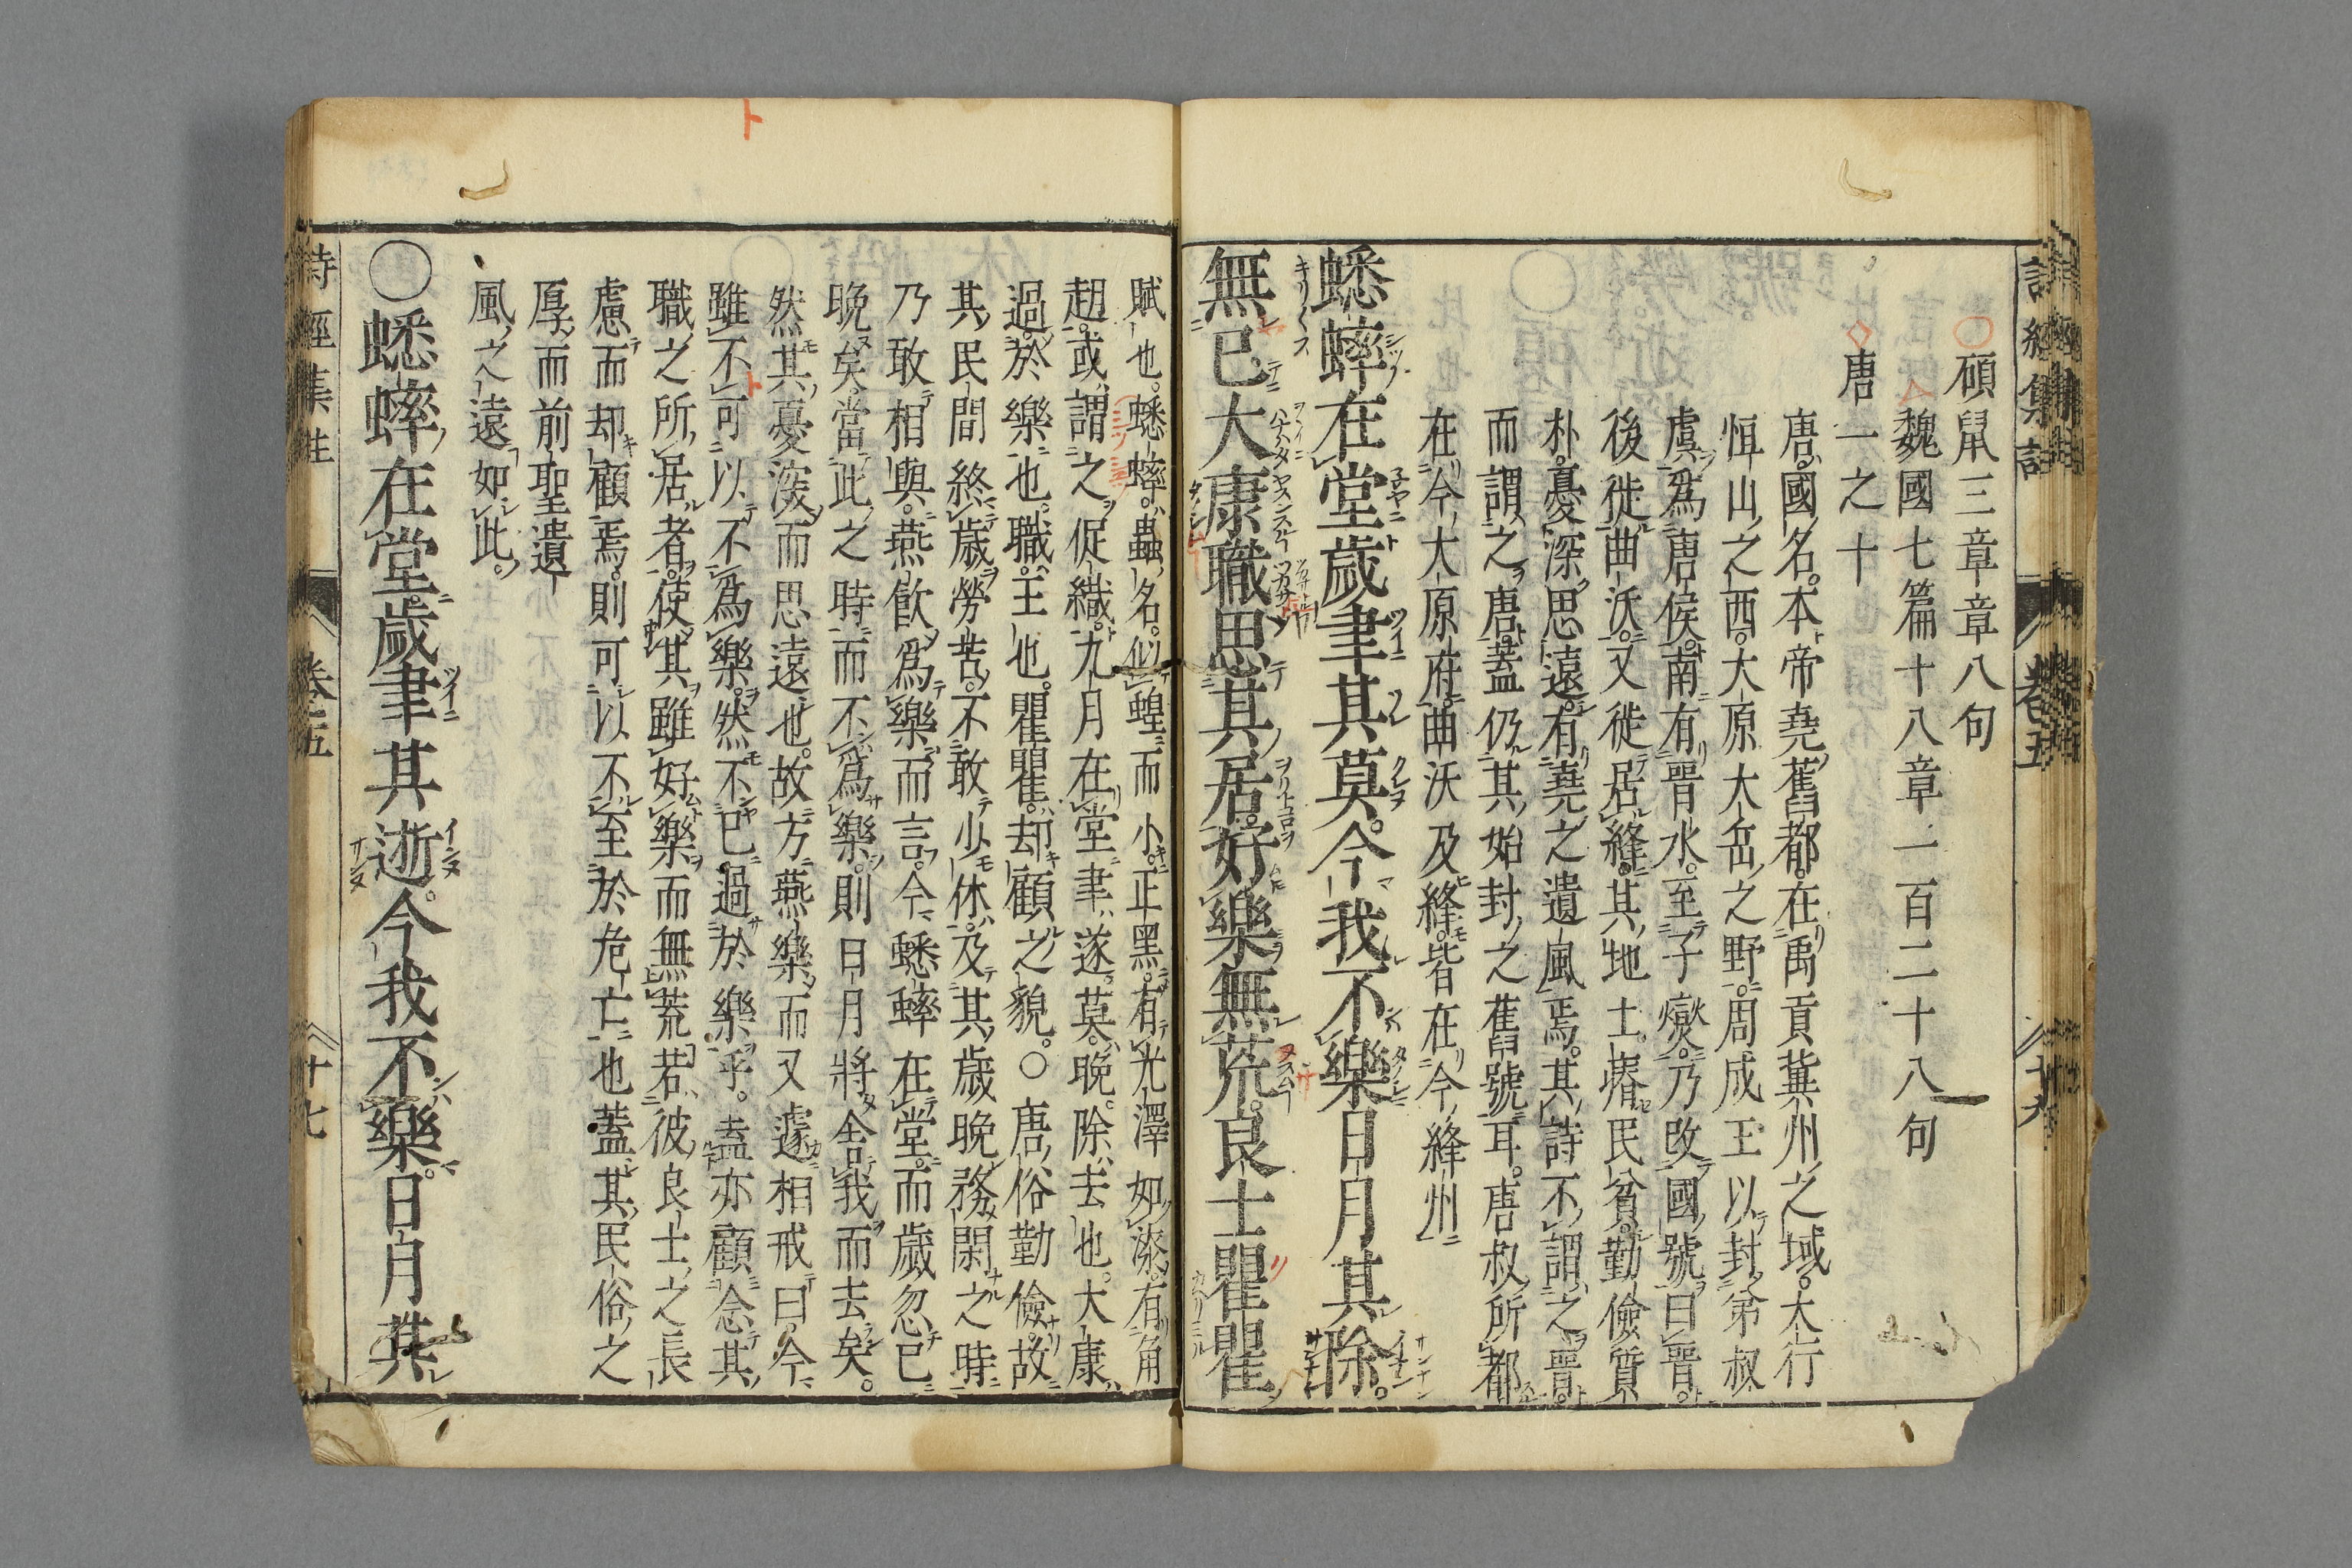 碩鼠三章章八句
魏國七篇十八章一百二十八句
唐一之十
唐國名本帝堯舊都在禹貢冀州之域大行
恒山之西大原大岳之野周成王以封弟叔
虞爲唐侯南有晉水至子燮乃改國號曰晉
後徙曲沃又徙居絳其地土瘠民貧勤儉質
朴憂深思遠有堯之遺風焉其詩不謂之晉
而謂之唐蓋仍其始封之舊號耳唐叔所都
在今大原府曲沃及絳皆在今絳州
蟋蟀在堂歲聿其莫。今我不樂日月其除。
無已大康職思其居。好樂無荒。良士瞿瞿
賦也。蟋蟀。蟲名。似蝗而小。正黑。有光澤如漆。有角
翅。或謂之促織。九月在堂。聿遂。莫晚。除去也。大康
過於樂也。職。主也。瞿瞿。却顧之貌。○唐俗勤儉。故
其民間終歲勞苦。不敢少休。及其歲晚務閑之時
乃敢相與。燕飲爲樂而言。今蟋蟀在堂。而歲忽已
晚矣。當此之時而不爲樂。則日月將舍我而去矣。
然其憂深而思遠也。故方燕樂而又遽相戒曰。今
雖不可以不爲樂。然不已過於樂乎。盍亦顧念其
職之所居者。使其雖好樂而無荒若彼良士之長
慮而却顧焉。則可以不至於危亡也蓋其民俗之
厚而前聖遺
風之遠如此。
○蟋蟀在堂。歲聿其逝。今我不樂。日月其
詩經集註
卷五
十七